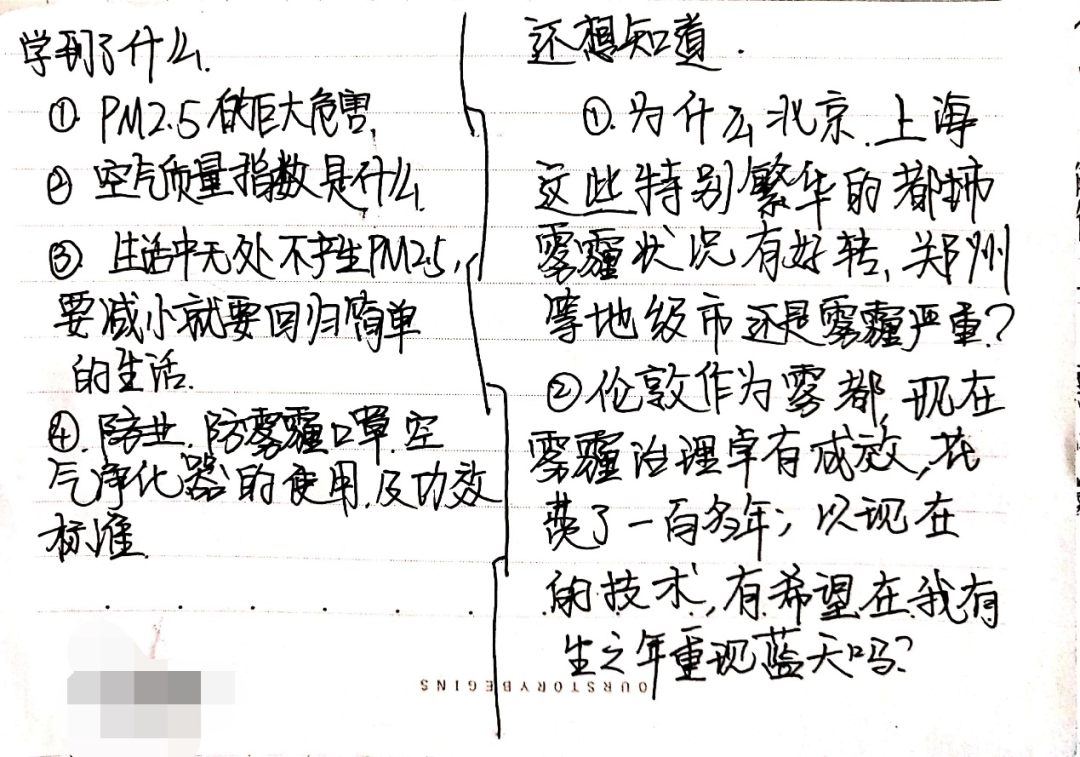 学到了什么.
①. PM2.5的巨大危害.
② 空气质量指数是什么.
③. 生活中无处不产生PM2.5,
要减小就要回归简单
的生活.
④. 业.防雾霾口罩.空
气净化器的使用.及功效
标准.
还想知道.
①.为什么北京.上海
这些特别繁华的都市
雾霾状况有好转,郑州
等地级市还是雾霾严重?
②伦敦作为雾都,现在
雾霾治理卓有成效,花
费了一百多年;以现在
的技术,有希望在我有
生之年重现蓝天吗?
OURSTORYBEGINS